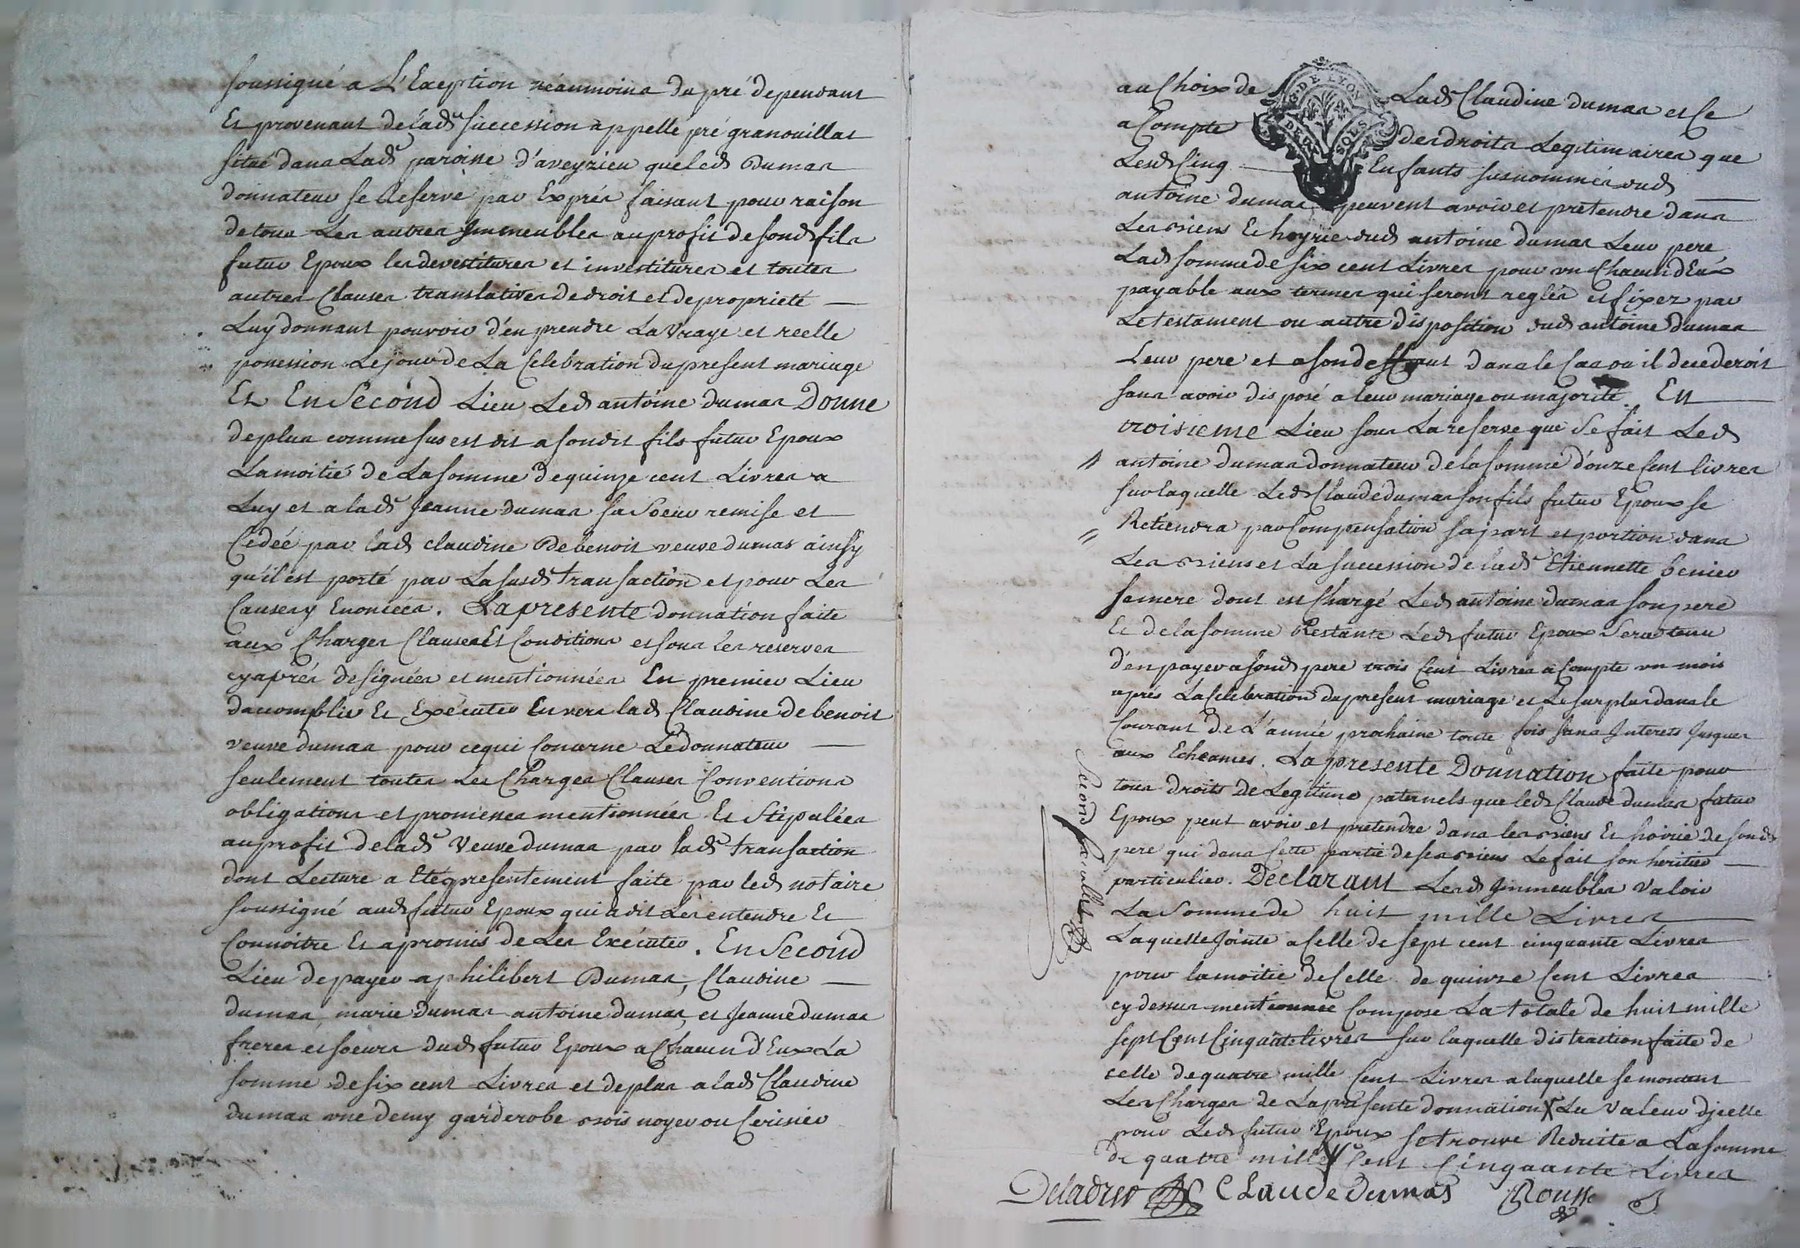 soussigné a L'Exeption néanmoins du pré dependant
Et provenant de lad.e succession appellé pré granouillat
situé dans Lad.e paroisse d'aveyzieu que led. Dumas
donnateur se Reserve par Exprés faisant pour raison
de tous Les autres Immeubles au profit de sond. fils
futur Epoux les devestitures et investitures et toutes
autres Clauses translatives de droit et de proprieté
Luy donnant pouvoir d'en prendre La vraye et reelle
possession Le jour de La Celebration du present mariage
Et En Second Lieu Led. antoine dumas Donne
de plus comme sus est dit a sondit fils futur Epoux
La moitié de La somme de quinze cent Livres a
Luy et a lad.e Jeanne dumas sa soeur remise et
Cedée par lad. claudine Debenoit veuve dumas ainsy
qu'il est porté par La susd. transaction et pour Les
Causes y Enoncées. La presente donnation faite
aux Charges Clauses Et Conditions et sous les reserves
cy aprés designées et mentionnées En premier Lieu
daccomplir Et Exécuter Envers lad. Claudine debenoit
veuve dumas pour ce qui Concerne Le donnateur
seulement toutes Les Charges Clauses Conventions
obligations et promesses mentionnées Et Stipulées
au profit de lad.e Veuve dumas par lad.e transaction
dont Lecture a Eté presentement faite par led. notaire
soussigné aud. futur Epoux qui a dit Les entendre Et
Connoitre Et a promis de Les Exécuter. En Second
Lieu de payer a philibert Dumas, Claudine
dumas, marie dumas antoine dumas, et Jeanne dumas
freres et soeurs dud. futur Epoux a Chacun d'Eux La
somme de six cent Livres et de plus a lad. Claudine
dumas une demy garderobe bois noyer ou Cerisier
au Choix de Lad. Claudine dumas et Ce
G. DE LYON
DEUX SOLS
a Compte des droits Legitimaires que
Lesd. Cinq Enfants susnommés dud.
antoine dumas peuvent avoir et pretendre dans
Les biens Et hoyrie dud. antoine dumas Leur pere
Lad. somme de six cent Livres pour un Chacun d'Eux
payable aux termes qui seront reglés et fixez par
Le testament ou autre disposition dud. antoine dumas
Leur pere et a son deffaut dans le Cas ou il decederoit
sans avoir disposé a leur mariage ou majorité. En
troisieme Lieu sous La reserve que Se fait Led.
antoine dumas donnateur de la somme d'onze Cent livres
sur laquelle Led. Claude dumas son fils futur Epoux se
Retiendra par Compensation sa part et portion dans
Les biens et La succession de lad.e Etiennette
sa mere dont est Chargé Led. antoine dumas son pere
Et de la somme Restante Led. futur Epoux Sera tenu
d'en payer a sond. pere trois Cent Livres a Compte un mois
aprés La Celebration du present mariage et Le surplus dans le
Courant de L'année prochaine toute fois sans Interets Jusques
aux Echeances. La presente Donnation faite pour
tous droits De Legitime paternels que led. Claude dumas futur
Epoux peut avoir et pretendre dans les biens Et hoirie de sond.
pere qui dans Cette partie de ses biens Le fait son heritier
particulier. Declarant Lesd. Immeubles valoir
La Somme de huit mille Livres
Laquelle Jointe a Celle de sept cent cinquante Livres
pour la moitié de Celle de quinze Cent Livres
cy dessus mentionnée Compose La totale de huit mille
sept Cent Cinquante livres sur laquelle distraction faite de
celle de quatre mille Cent Livres a laquelle se montent
Les Charges de La presente donnation X La valeur d'jcelle
pour Led. futur Epoux se trouve Reduite a La somme
de quatre mille X Cent Cinquante Livres
Second
Claude dumas Rousse